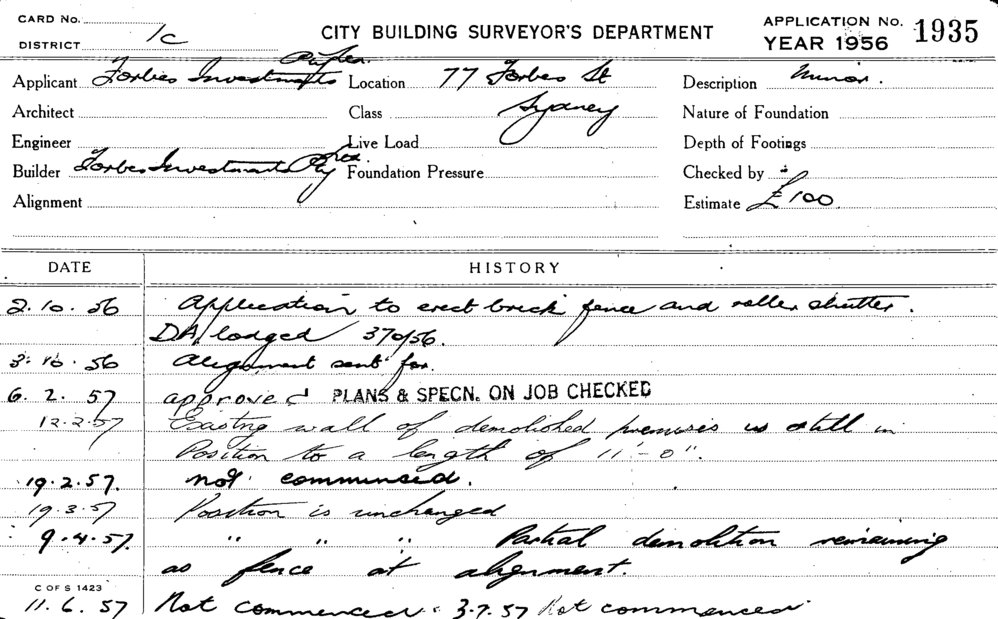 CARD No.
DISTRICT 1c
CITY BUILDING SURVEYOR'S DEPARTMENT
APPLICATION No. 1935
YEAR 1956
Applicant Forbes Investments
Location 77 Forbes St
Sydney
Description Minor.
Architect
Class
Nature of Foundation
Engineer
Live Load
Depth of Footings
Builder Forbes Investments Pty
Foundation Pressure
Checked by
Alignment
Estimate £100
DATE HISTORY
2.10.56 Application to erect brick fence and roller shutter.
DA lodged 370/56.
3.10.56 Alignment sent for.
6.2.57 approved PLANS & SPECN. ON JOB CHECKED
12.2.57 Existing wall of demolished premises is still in
Position to a length of 11'-0".
19.2.57. not commensed.
19.3.57 Position is unchanged
9.4.57. " " " Partial demolition remaining
as fence at alignment.
C OF S 1423
11.6.57 Not commenced. 3.7.57 Not commenced